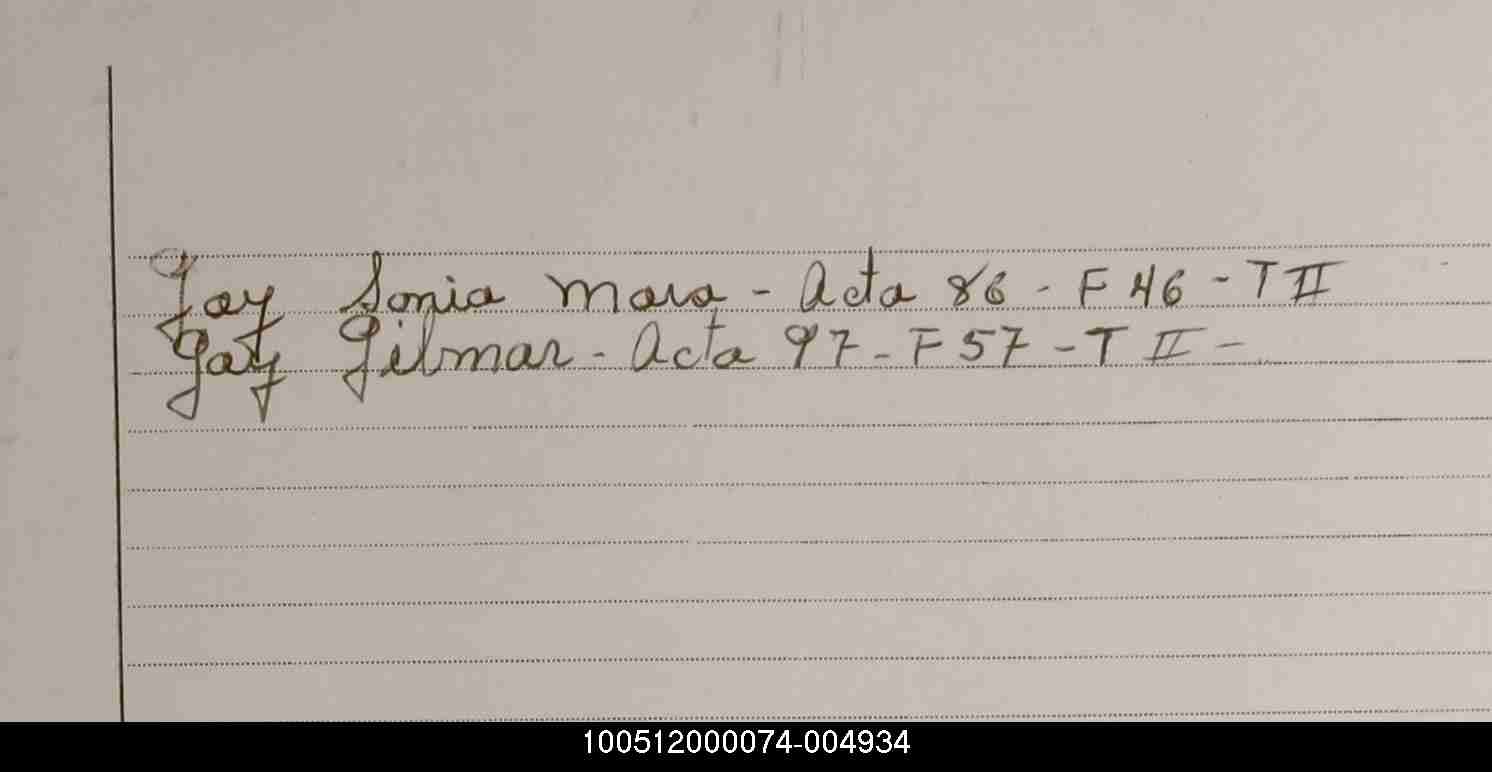 Jay Sonia Mara - Acta 86 - F 46 - T II
Jay Gilmar - Acta 97 - F 57 - T II -
100512000074-004934